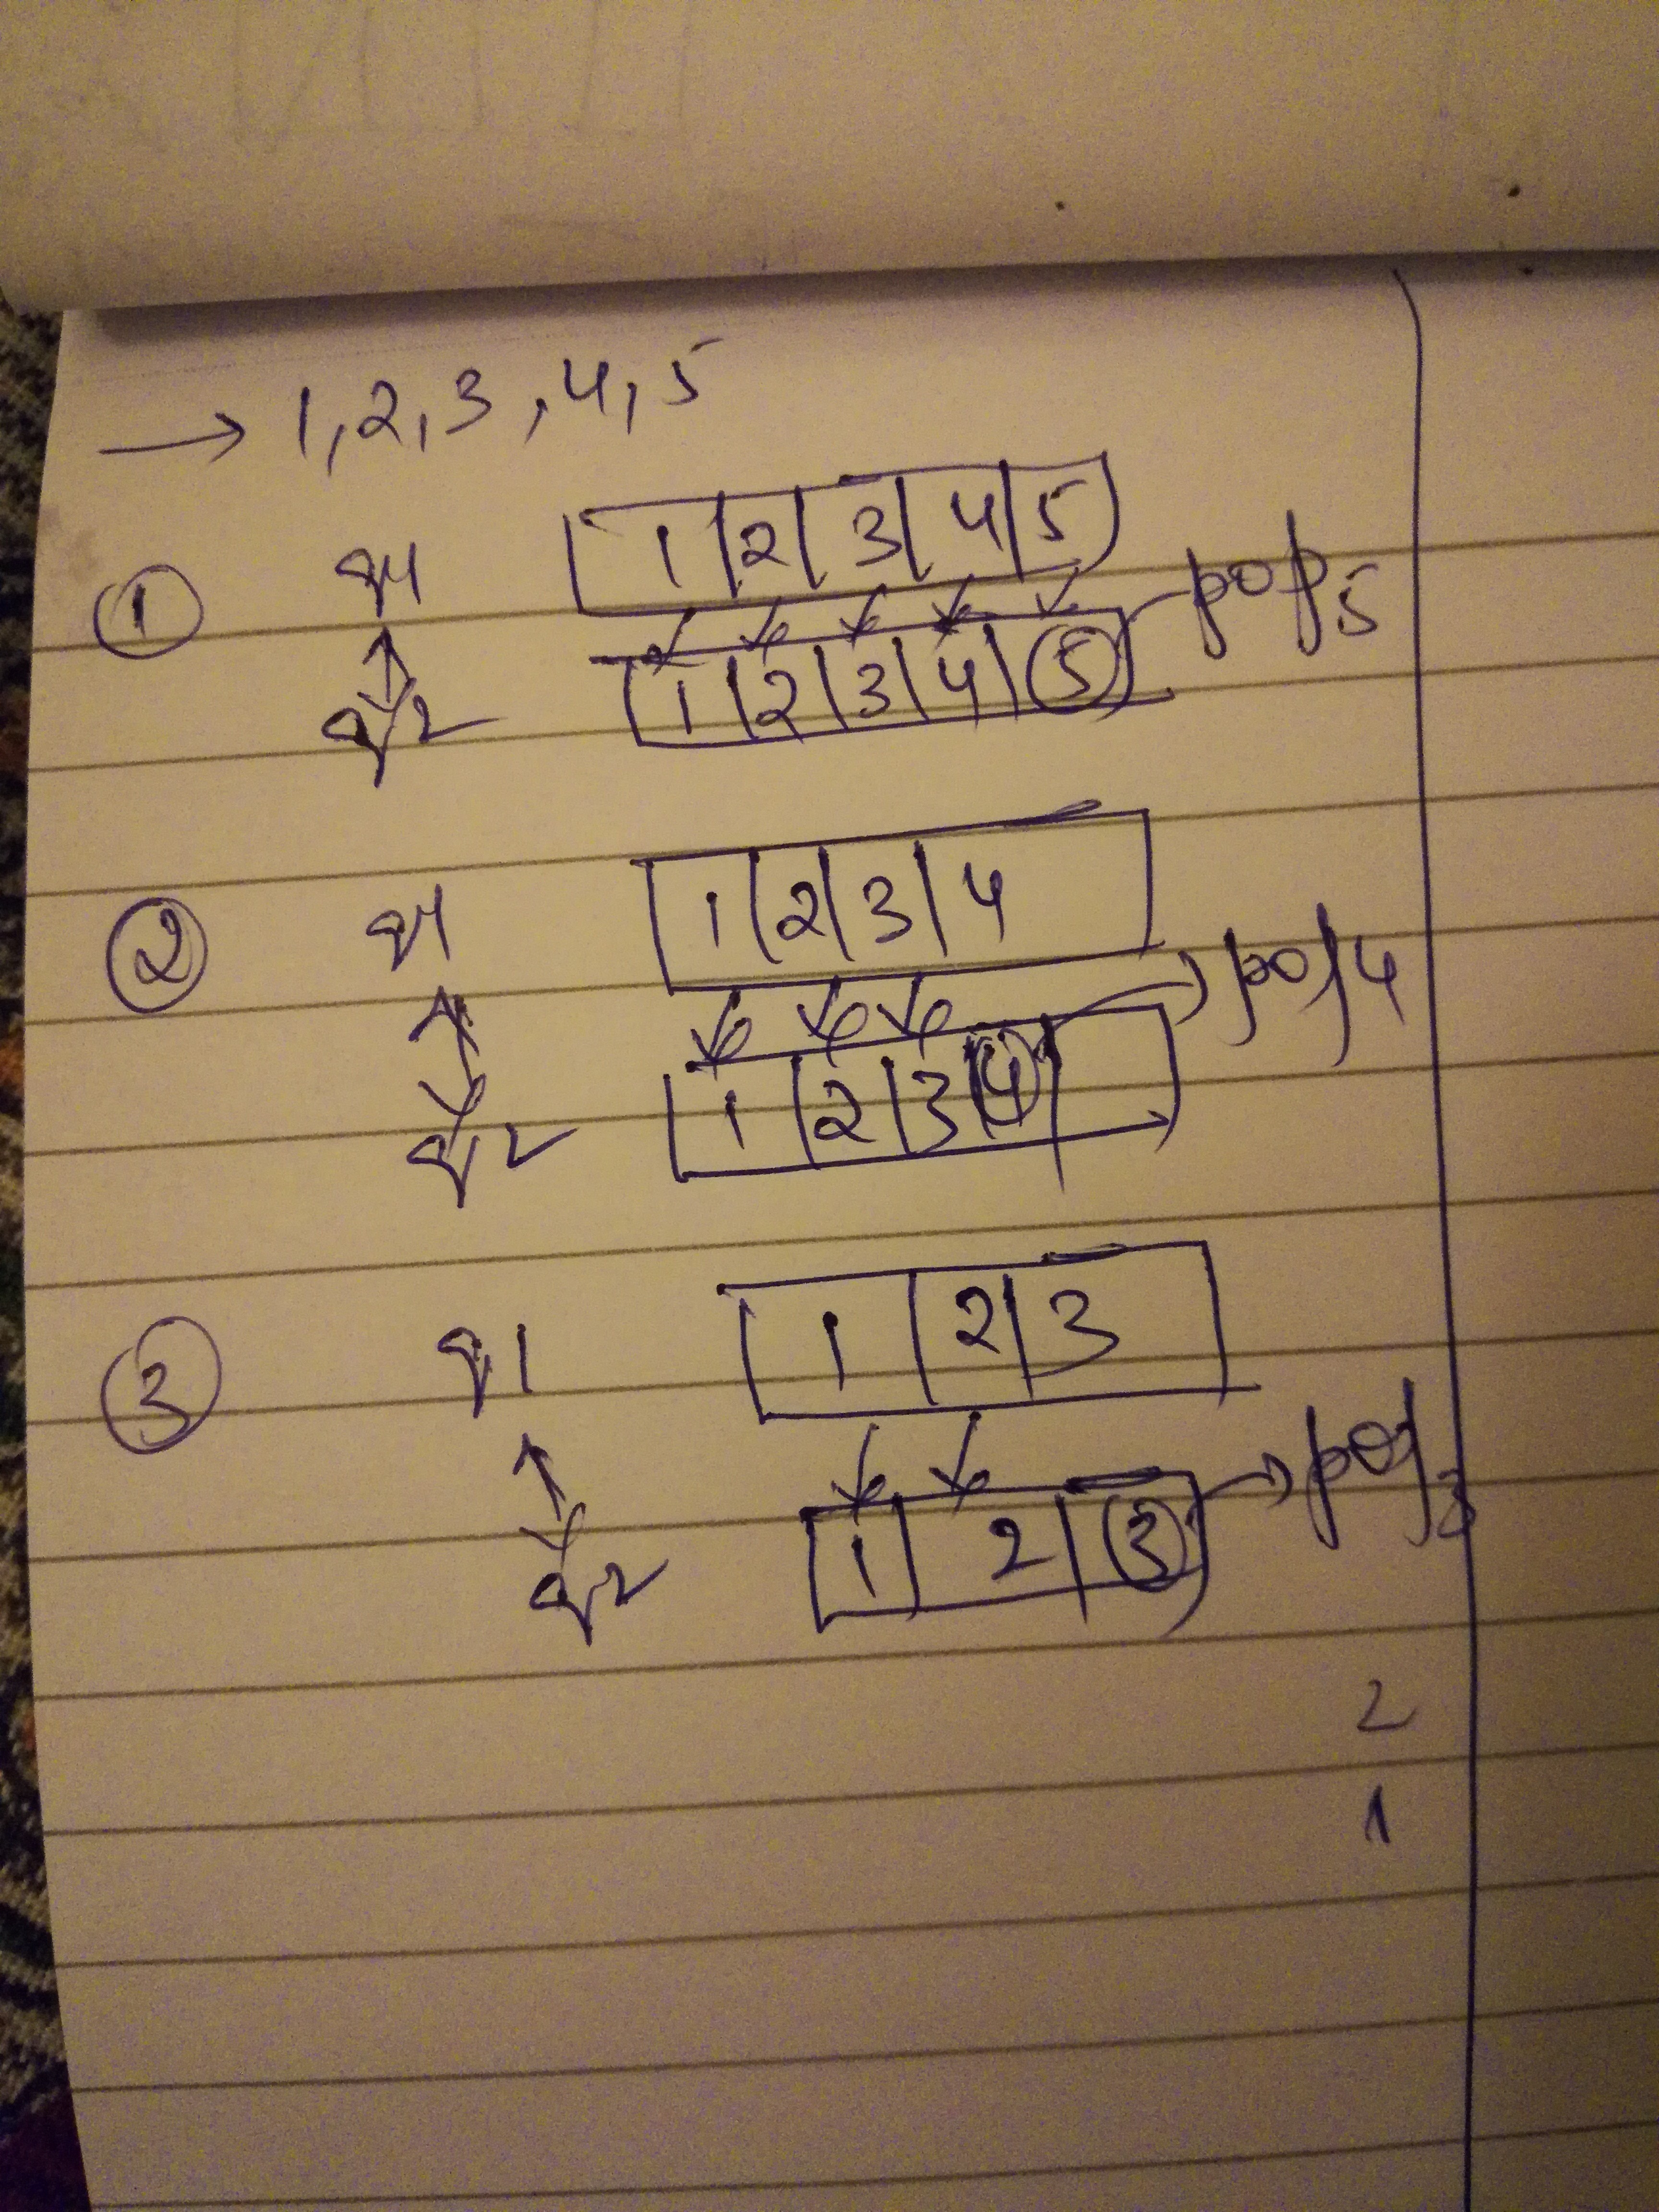 → 1, 2, 3, 4, 5
① q1 1 2 3 4 5
q2 1 2 3 4 5 pop 5
② q1 1 2 3 4
q2 1 2 3 4 → pop 4
③ q1 1 2 3
q2 1 2 3 → pop 3
2
1